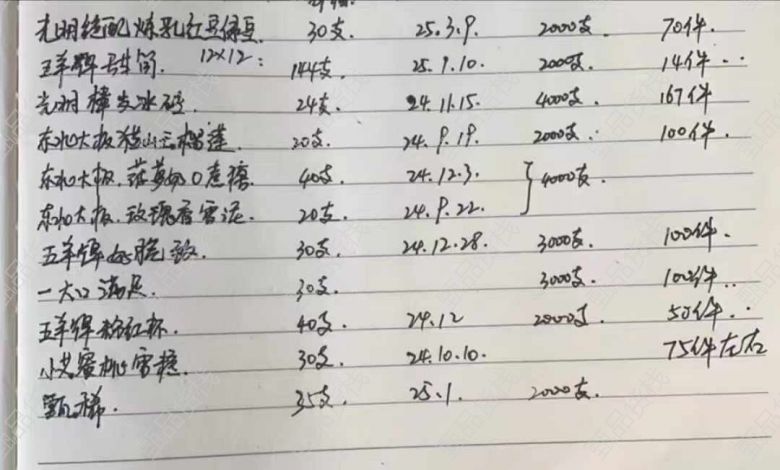 光明绝配炼乳红豆绿豆 30支. 25.3.9. 2000支 70件.
五羊牌 筒. 12×12: 144支. 25.1.10. 2000支. 14件..
光明 棒冰砖. 24支. 24.11.15. 4000支. 167件
东北大板猫山王榴莲. 20支. 24.9.19. 2000支. 100件.
东北大板. 0蔗糖. 40支. 24.12.3. } 4000支.
东北大板.玫瑰香雪泥. 20支. 24.9.22.
五羊牌 脆 . 30支. 24.12.28. 3000支. 100件.
一大口满足. 30支. 3000支. 100件..
五羊牌粉红杯. 40支. 24.12 2000支. 50件..
小 蜜桃雪糕. 30支. 24.10.10. 75件左右
甄稀. 35支. 25.1. 2000支.